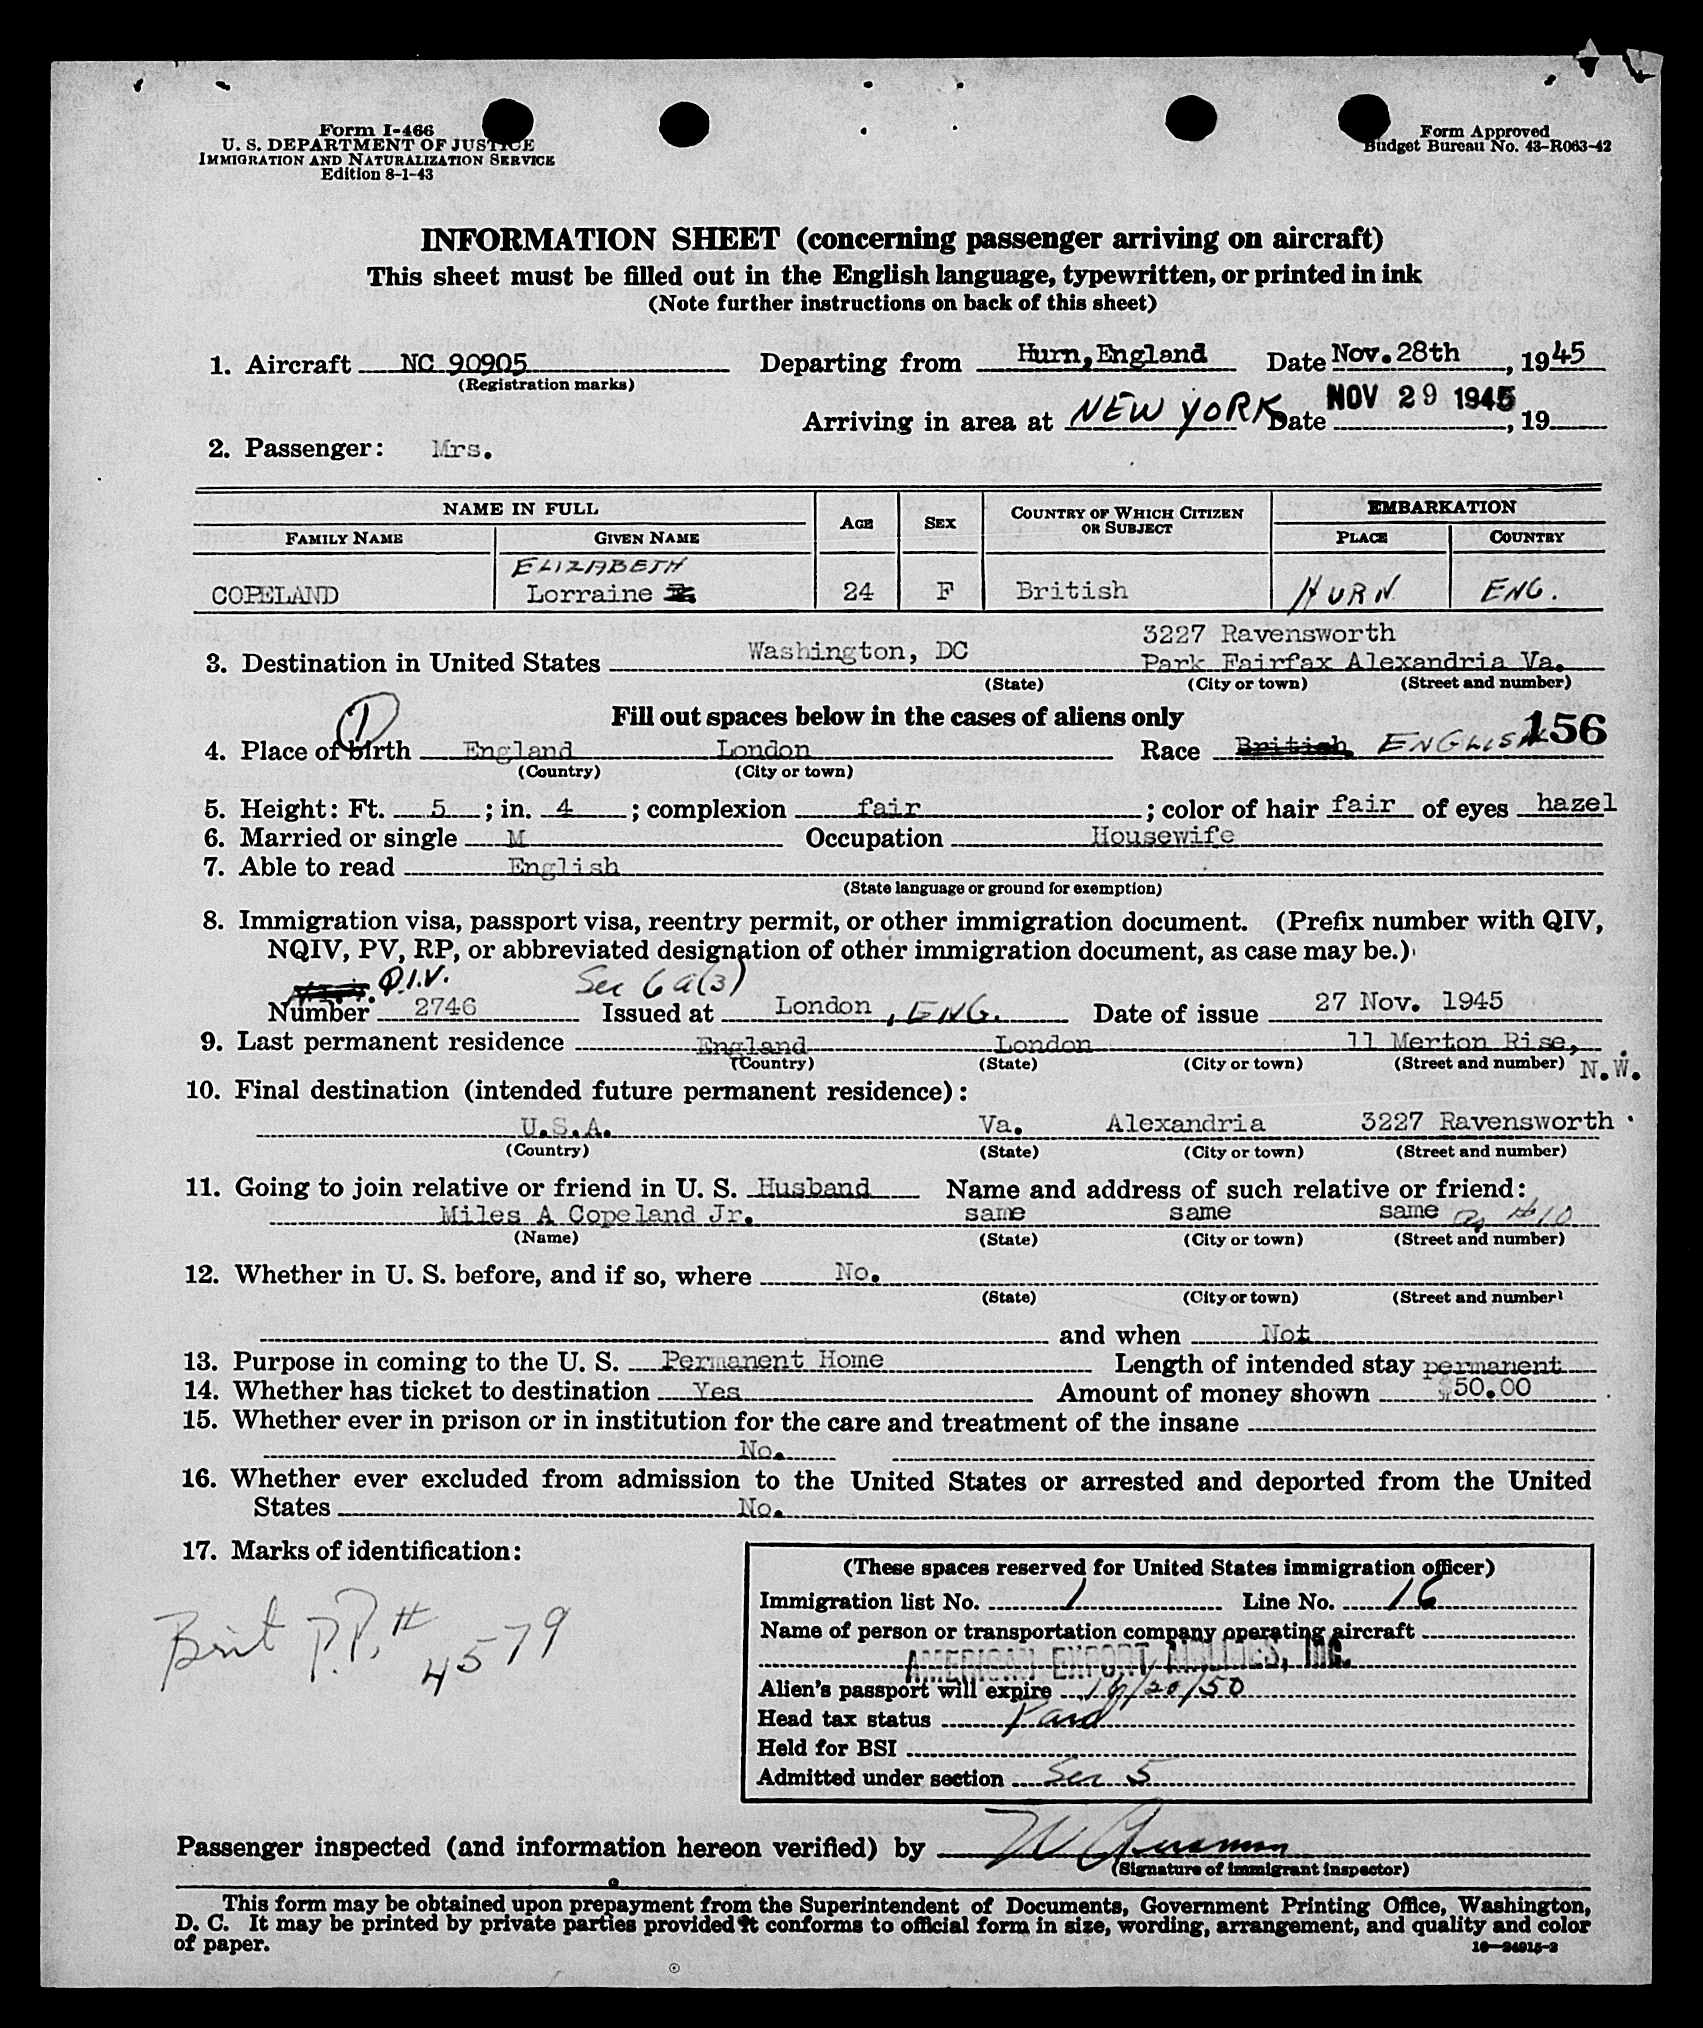 Form I-466
U. S. DEPARTMENT OF JUSTICE
IMMIGRATION AND NATURALIZATION SERVICE
Edition 8-1-43
Form Approved
Budget Bureau No. 43-R063-42
INFORMATION SHEET (concerning passenger arriving on aircraft)
This sheet must be filled out in the English language, typewritten, or printed in ink
(Note further instructions on back of this sheet)
1. Aircraft NC 90905 Departing from Hurn, England Date Nov. 28th, 1945
(Registration marks)
Arriving in area at NEW YORK Date NOV 29 1945, 19
2. Passenger: Mrs.
NAME IN FULL AGE SEX COUNTRY OF WHICH CITIZEN OR SUBJECT EMBARKATION
FAMILY NAME GIVEN NAME PLACE COUNTRY
ELIZABETH
COPELAND Lorraine 24 F British HURN ENG.
3227 Ravensworth
3. Destination in United States Washington, DC Park Fairfax Alexandria Va.
(State) (City or town) (Street and number)
1
Fill out spaces below in the cases of aliens only
156
4. Place of birth England London Race British ENGLISH
(Country) (City or town)
5. Height: Ft. 5; in. 4; complexion fair; color of hair fair of eyes hazel
6. Married or single M Occupation Housewife
7. Able to read English
(State language or ground for exemption)
8. Immigration visa, passport visa, reentry permit, or other immigration document. (Prefix number with QIV,
NQIV, PV, RP, or abbreviated designation of other immigration document, as case may be.)
Q.I.V. Sec 6a(3)
Number 2746 Issued at London, ENG. Date of issue 27 Nov. 1945
9. Last permanent residence England London 11 Merton Rise,
(Country) (State) (City or town) (Street and number) N.W.
10. Final destination (intended future permanent residence):
U.S.A. Va. Alexandria 3227 Ravensworth
(Country) (State) (City or town) (Street and number)
11. Going to join relative or friend in U. S. Husband Name and address of such relative or friend:
Miles A Copeland Jr. same same same as #10
(Name) (State) (City or town) (Street and number)
12. Whether in U. S. before, and if so, where No.
(State) (City or town) (Street and number)
and when Not
13. Purpose in coming to the U. S. Permanent Home Length of intended stay permanent
14. Whether has ticket to destination Yes Amount of money shown $50.00
15. Whether ever in prison or in institution for the care and treatment of the insane
No.
16. Whether ever excluded from admission to the United States or arrested and deported from the United
States No.
17. Marks of identification:
Brit P.P. # 4579
(These spaces reserved for United States immigration officer)
Immigration list No. 1 Line No. 16
Name of person or transportation company operating aircraft
AMERICAN EXPORT AIRLINES, INC.
Alien's passport will expire /20/50
Head tax status Paid
Held for BSI
Admitted under section Sec 5
Passenger inspected (and information hereon verified) by
(Signature of immigrant inspector)
This form may be obtained upon prepayment from the Superintendent of Documents, Government Printing Office, Washington,
D. C. It may be printed by private parties provided it conforms to official form in size, wording, arrangement, and quality and color
of paper.
16—24915-2